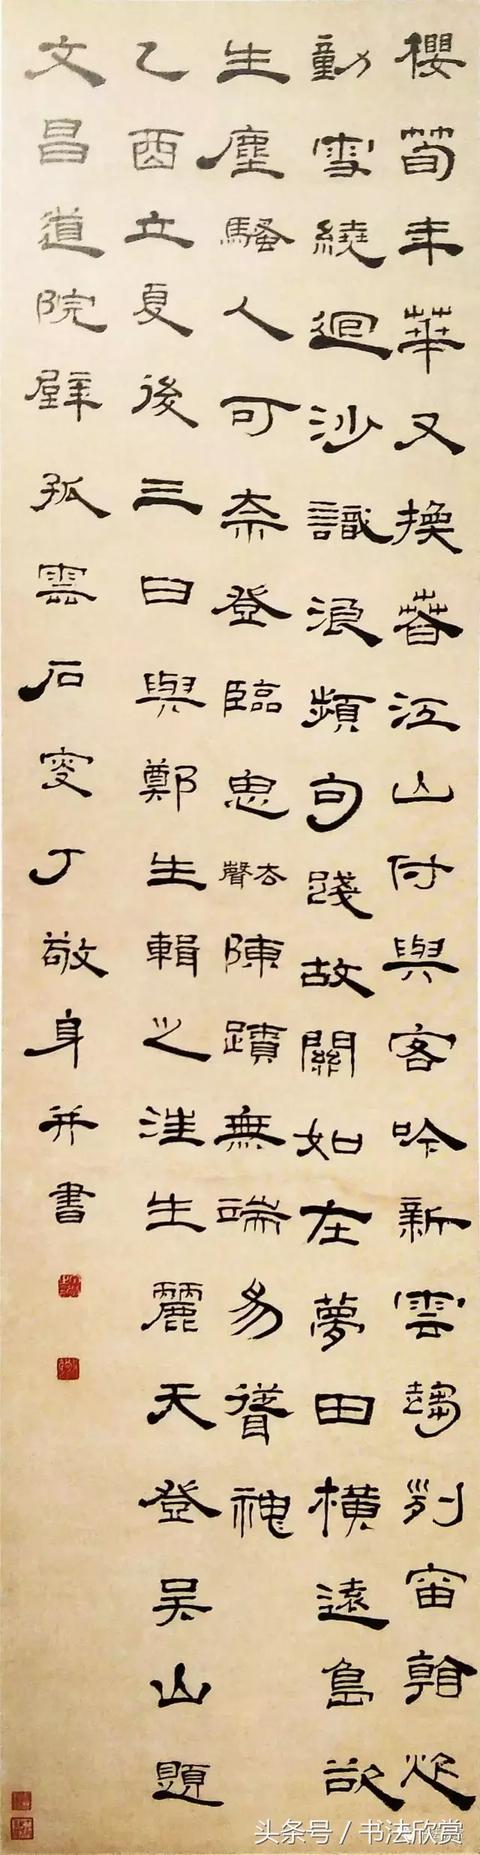 櫻筍年華又換萅江山付與客吟新雲趨列炊
動雪繞迴沙識浪頻句踐故關如在夢田橫遠島欲
生塵騷人可奈登臨思去聲陳蹟無端易神
乙酉立夏後三日與鄭生輯之汪生麗天登吳山題
文昌道院壁孤雲石叟丁敬身并書
头条号 / 书法欣赏